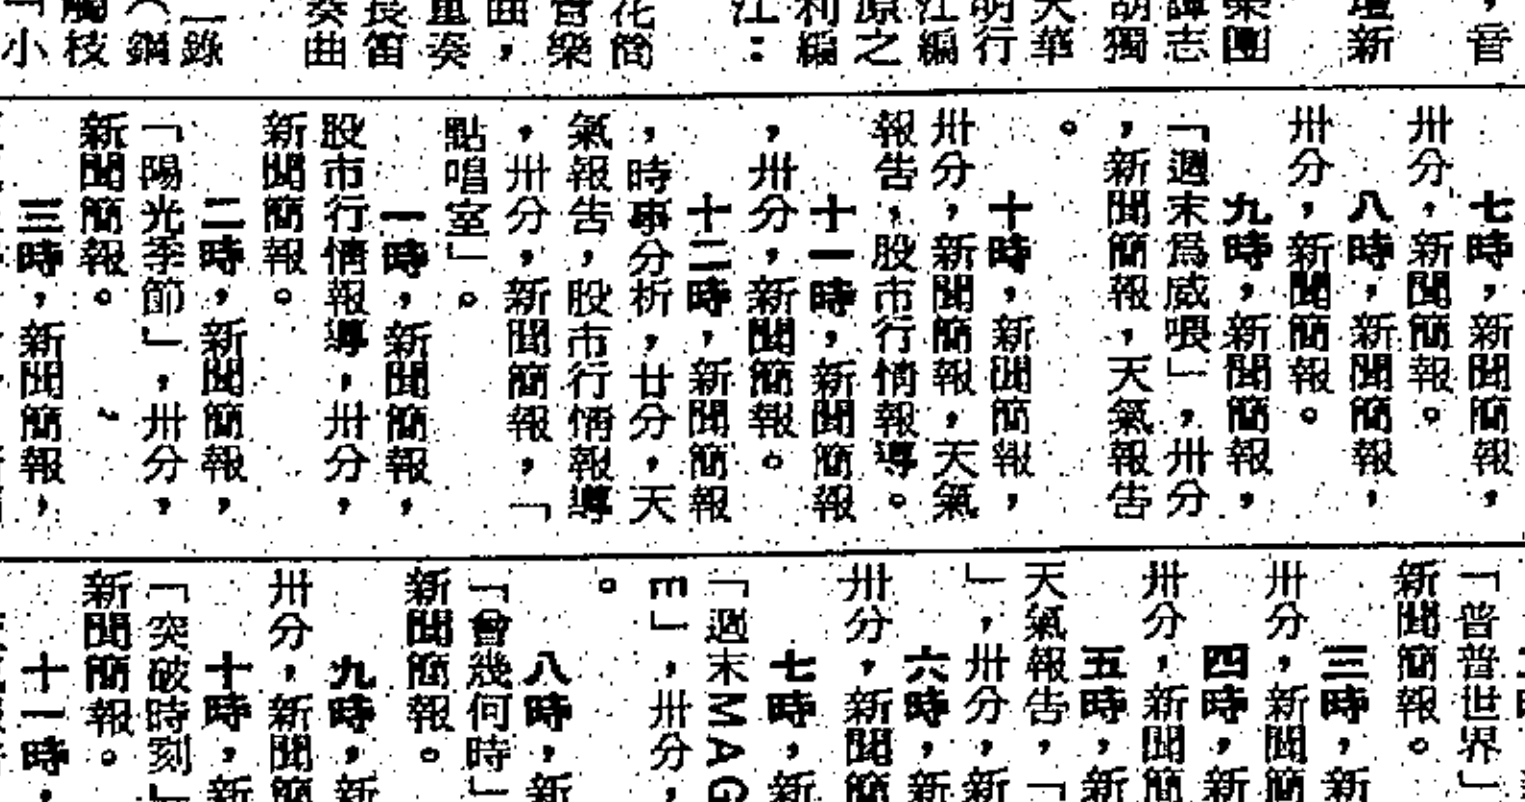 ，音
壇新
樂團
譚志
胡獨
天華
明行
江編
原之
利編
江：
花筒
音樂
曲，
重奏
長笛
奏曲
錄
（鋼
觸枝
「小
七時，新聞簡報，
卅分，新聞簡報。
八時，新聞簡報，
卅分，新聞簡報。
九時，新聞簡報，
「週末為威喂」，卅分
，新聞簡報，天氣報告
。
十時，新聞簡報，
卅分，新聞簡報，天氣
報告，股市行情報導。
十一時，新聞簡報
，卅分，新聞簡報。
十二時，新聞簡報
，時事分析，廿分，天
氣報告，股市行情報導
，卅分，新聞簡報，「
點唱室」。
一時，新聞簡報，
股市行情報導，卅分，
新聞簡報。
二時，新聞簡報，
「陽光季節」，卅分，
新聞簡報。
三時，新聞簡報，
「普普世界」
新聞簡報。
三時，新
卅分，新聞簡
四時，新
卅分，新聞簡
五時，新
天氣報告，「
」，卅分，新
六時，新
卅分，新聞簡
七時，新
「週末MAG
E」，卅分，
。
八時，新
「會幾何時」
新聞簡報。
九時，新
卅分，新聞簡
十時，新
「突破時刻」
新聞簡報。
十一時，